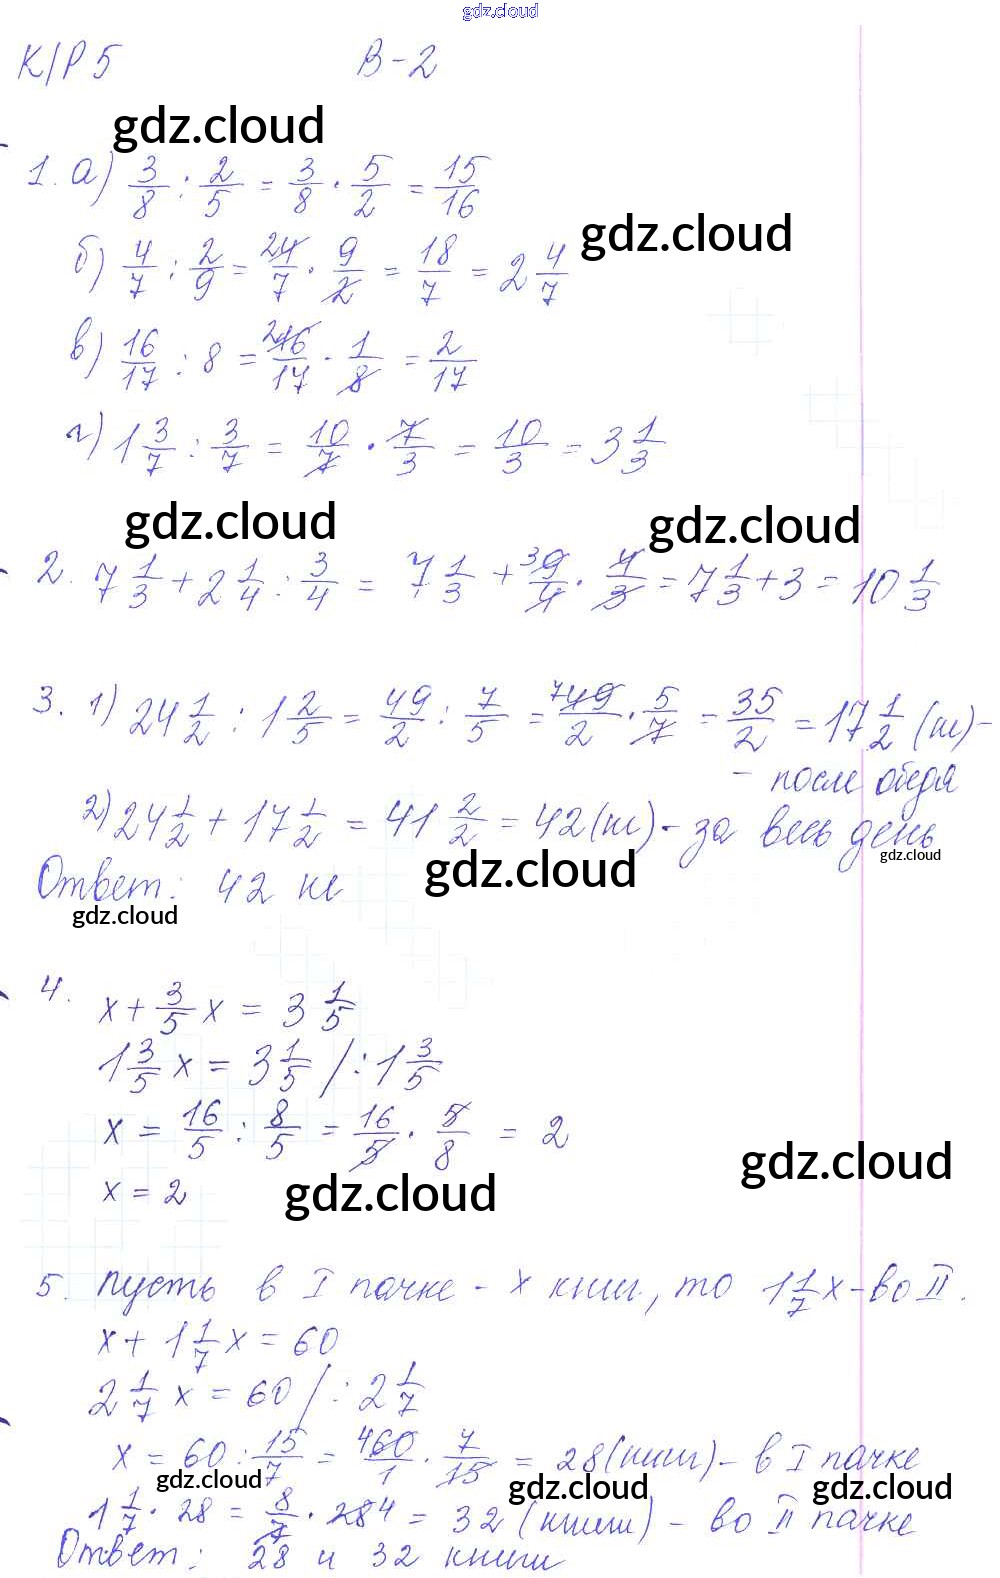 gdz.cloud
К/Р 5 В-2
gdz.cloud
1. а) 3/8 : 2/5 = 3/8 · 5/2 = 15/16
gdz.cloud
б) 4/7 : 2/9 = 24/7 · 9/2 = 18/7 = 2 4/7
в) 16/17 : 8 = 216/17 · 1/8 = 2/17
г) 1 3/7 : 3/7 = 10/7 · 7/3 = 10/3 = 3 1/3
gdz.cloud gdz.cloud
2. 7 1/3 + 2 1/4 : 3/4 = 7 1/3 + 39/4 · 4/3 = 7 1/3 + 3 = 10 1/3
3. 1) 24 1/2 : 1 2/5 = 49/2 : 7/5 = 749/2 · 5/7 = 35/2 = 17 1/2 (м) -
- после обеда
2) 24 1/2 + 17 1/2 = 41 2/2 = 42 (м) - за весь день
gdz.cloud gdz.cloud
Ответ: 42 м
gdz.cloud
4. x + 3/5 x = 3 1/5
1 3/5 x = 3 1/5 / : 1 3/5
x = 16/5 : 8/5 = 16/5 · 5/8 = 2
gdz.cloud
x = 2
gdz.cloud
5. Пусть в I пачке - x книг, то 1 1/7 x - во II.
x + 1 1/7 x = 60
2 1/7 x = 60 / : 2 1/7
x = 60 : 15/7 = 460/1 · 7/15 = 28 (книг) - в I пачке
gdz.cloud gdz.cloud gdz.cloud
1 1/7 · 28 = 8/7 · 284 = 32 (книги) - во II пачке
Ответ: 28 и 32 книги